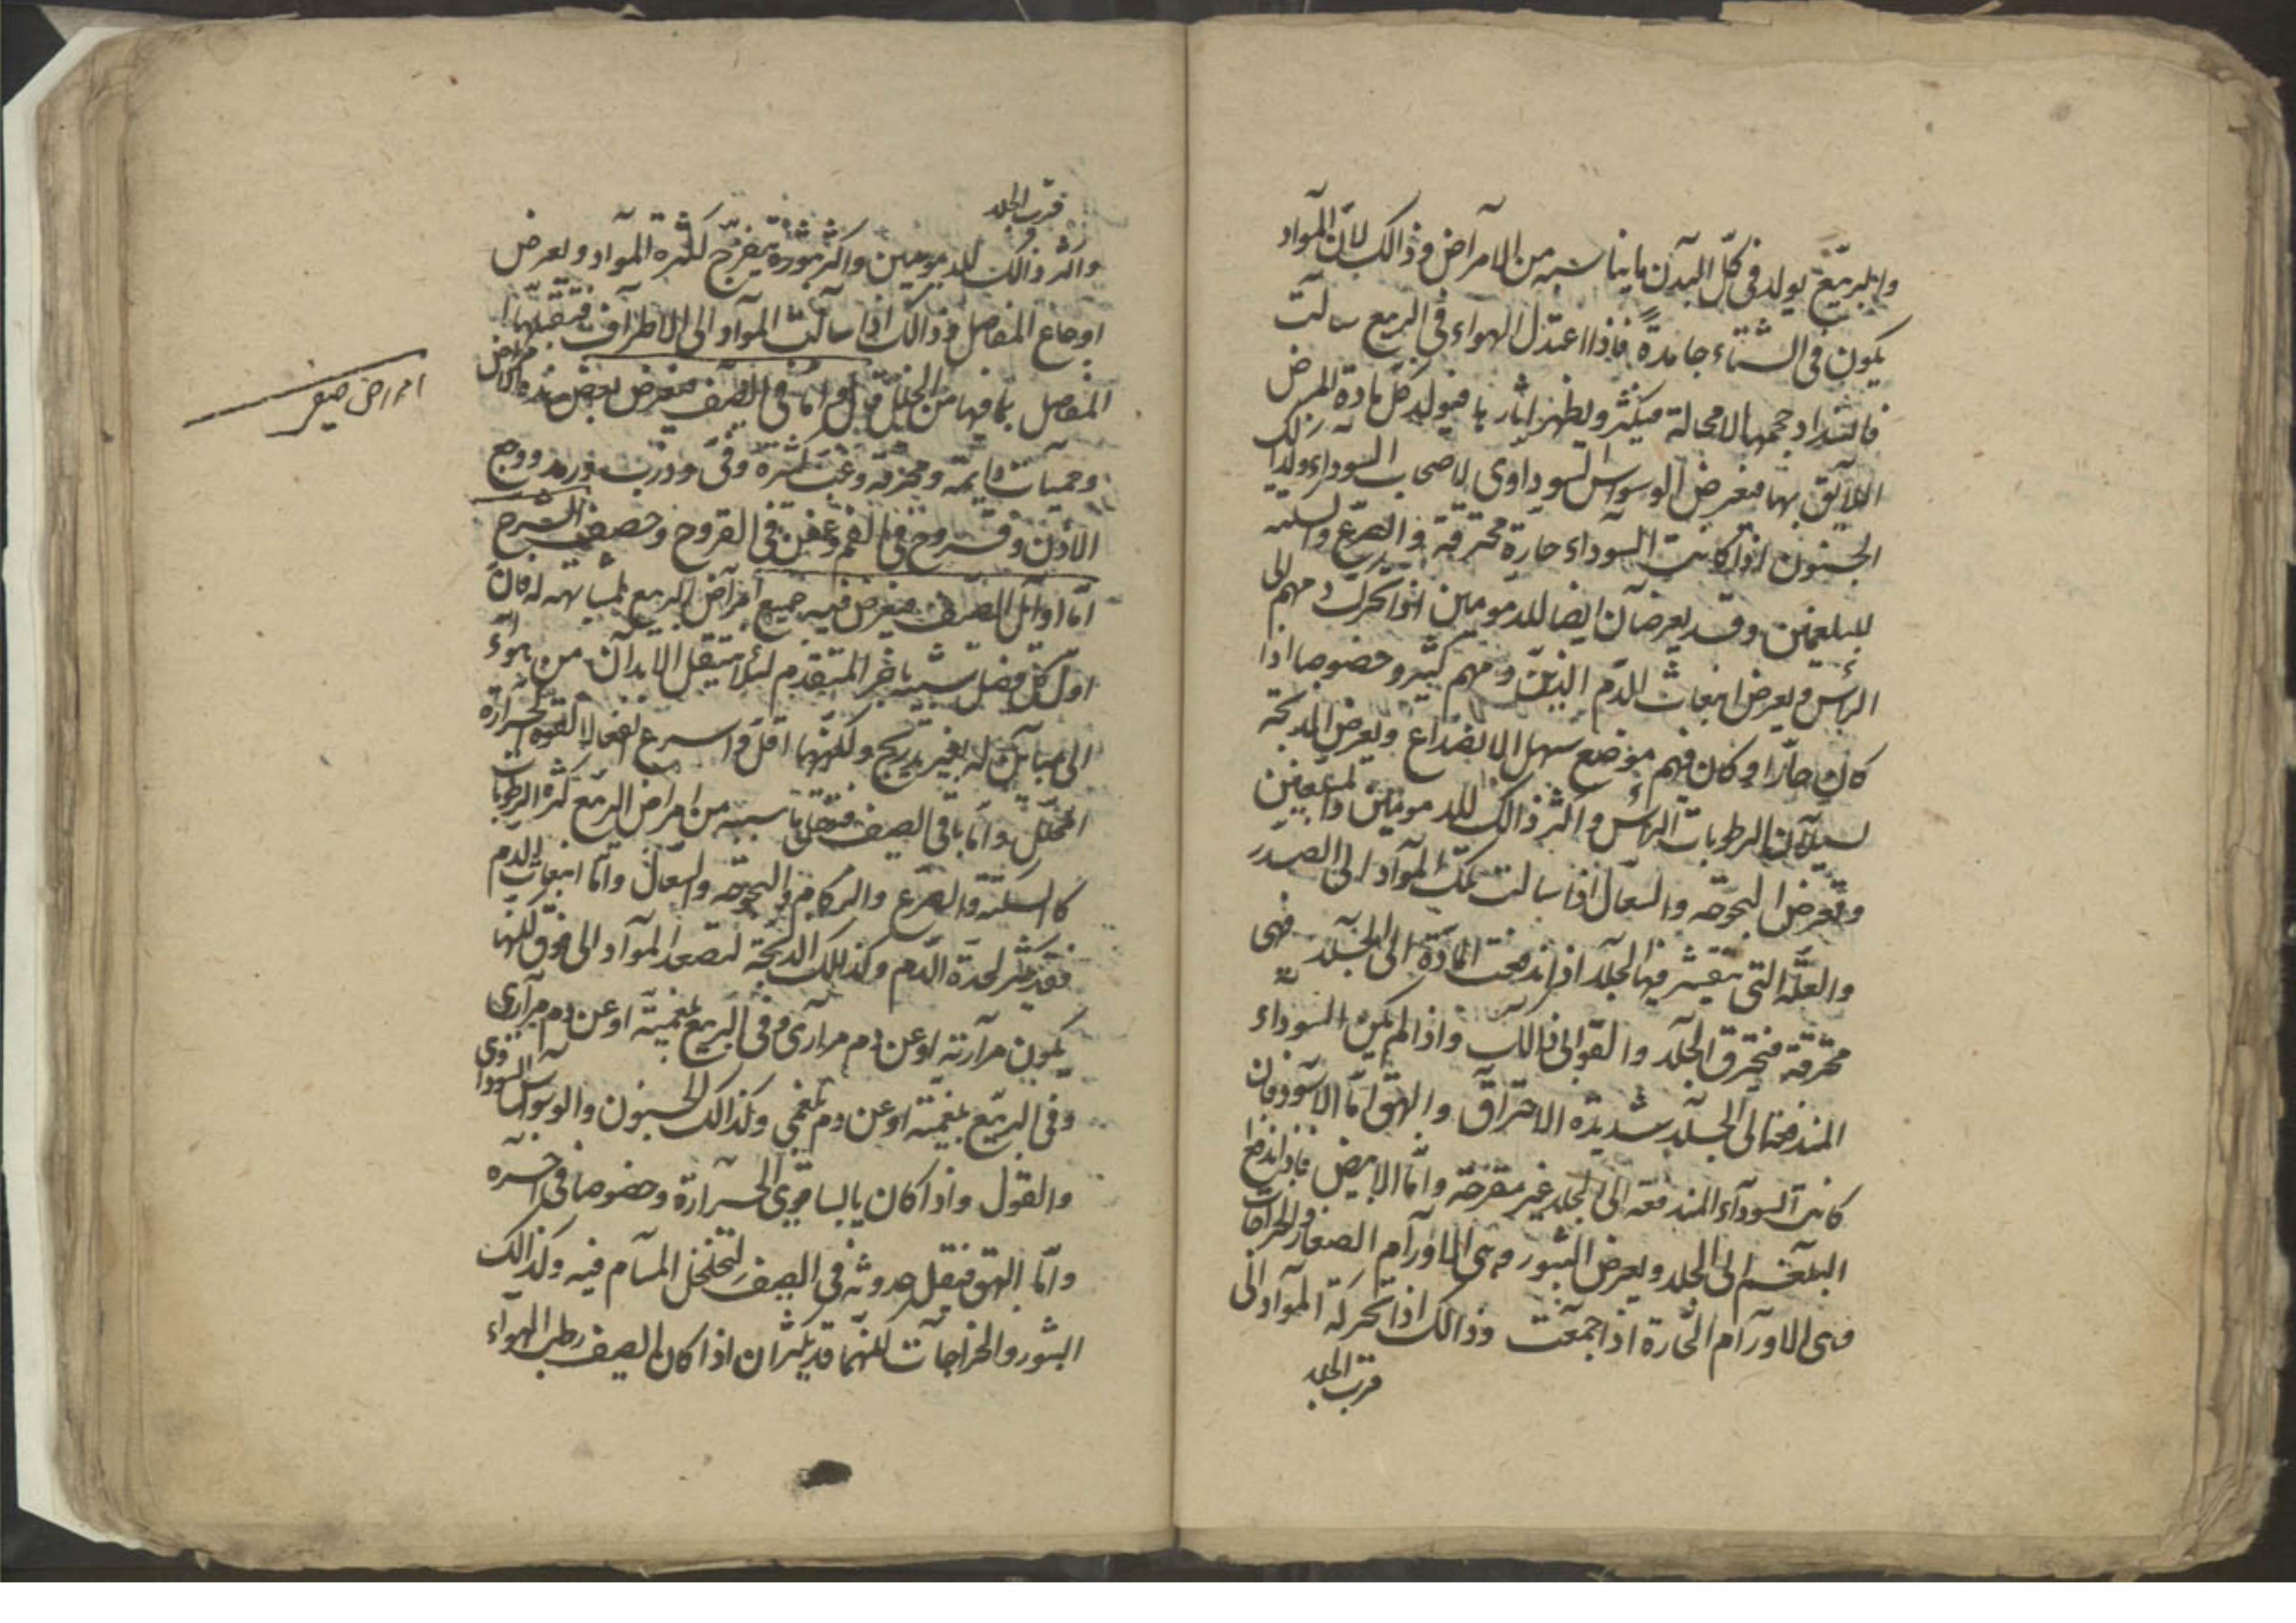 والربيع يولد في كل البدن ما يناسبه من الامراض وذالك لأن المواد
يكون في الشتاء جامدة فاذا اعتدل الهواء في الربيع سالت
فالتداد حجمها لا محالة فيكثر ويظهر اثارها فيولد كل مادة المرض
اللايق بها فيعرض الوسواس السوداوى لاصحاب السوداء وكذالك
الجنون اذا كانت السوداء حارة محترقة والصرع والسكتة
للبلغميين وقد يعرضان ايضا للدمويين اذا تحرك دمهم الى
الرأس ويعرض انبعاث الدم الذين دمهم كثير وخصوصا اذا
كان حارا وكان فيهم موضع سهل الانصداع ويعرض الذبحة
لسيلان الرطوبات الرأس واكثر ذالك للدمويين والبلغميين
وتعرض البحوحة والسعال اذا سالت تلك المواد الى الصدر
والعلة التى يتقشر فيها الجلد اذا اندفعت المادة الى الجلد فهى
محترقة فتحرق الجلد والقوابى فالك واذا لم يكن السوداء
المندفعة الى الجلد شديدة الاحتراق والبهق اما الاسود فان
كانت السوداء المندفعة الى الجلد غير مقرحة واما الابيض فاذا اندفع
البلغم الى الجلد ويعرض البثور وهى الاورام الصغار والخراجات
وهى الاورام الحارة اذا جمعت وذالك اذا تحركة المواد الى
قرب الجلد
قرب الجلد
واكثر ذالك للدمويين واكثر بثوره يتقرح لكثرة المواد ويعرض
اوجاع المفاصل وذالك اذا سالت المواد الى الاطراف فتقبلها
المفاصل بما فيها من الخلل قبل واما في الصيف فيعرض بعض هذه الامراض
امراض صيف
وحميات دايمة ومحرقة وغب كثيرة وقى وذرب ورمد ووجع
الاذن وقروح في الفم وعفن في القروح وحصف الشرح
اما اوائل الصيف فيعرض فيه جميع امراض الربيع لمشابهته له فان
اول كل فصل شبيه باخر المتقدم لئلا ينتقل الابدان من هواء
الى مباين له بغير تدريج ولكنهما اقل واسرع انفعالا لقوة الحرارة
المحلل واما باقى الصيف فتقل ما سببه من امراض الربيع كثرة الرطوبات
كالسكتة والصرع والزكام والبحوحة والسعال واما انبعاث الدم
فقد يكثر لحدة الدم وكذلك الذبحة لتصعد المواد الى فوق لكنها
يكون مرارية او عن دم مرارى وفي الربيع بلغمية او عن دم مرارى
وفي الربيع بلغمية او عن دم بلغمى وكذالك الجنون والوسواس السوداوى
والقول واذا كان يابسا قوى الحرارة وخصوصا في اخره
واما البهق فيقل حدوثه في الصيف لتخلخل المسام فيه وكذالك
البثور والخراجات لكنهما قد يكثران اذا كان الصيف رطب الهواء